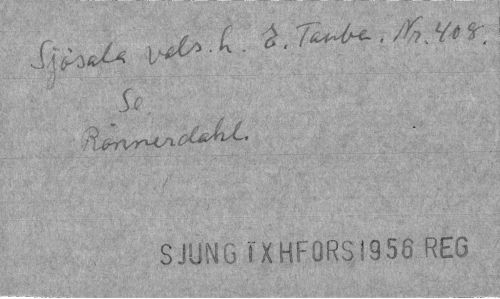 Sjösala vals. h. E. Taube. Nr. 408.
Se
Rönnerdahl.
SJUNG IXHFORS1956 REG